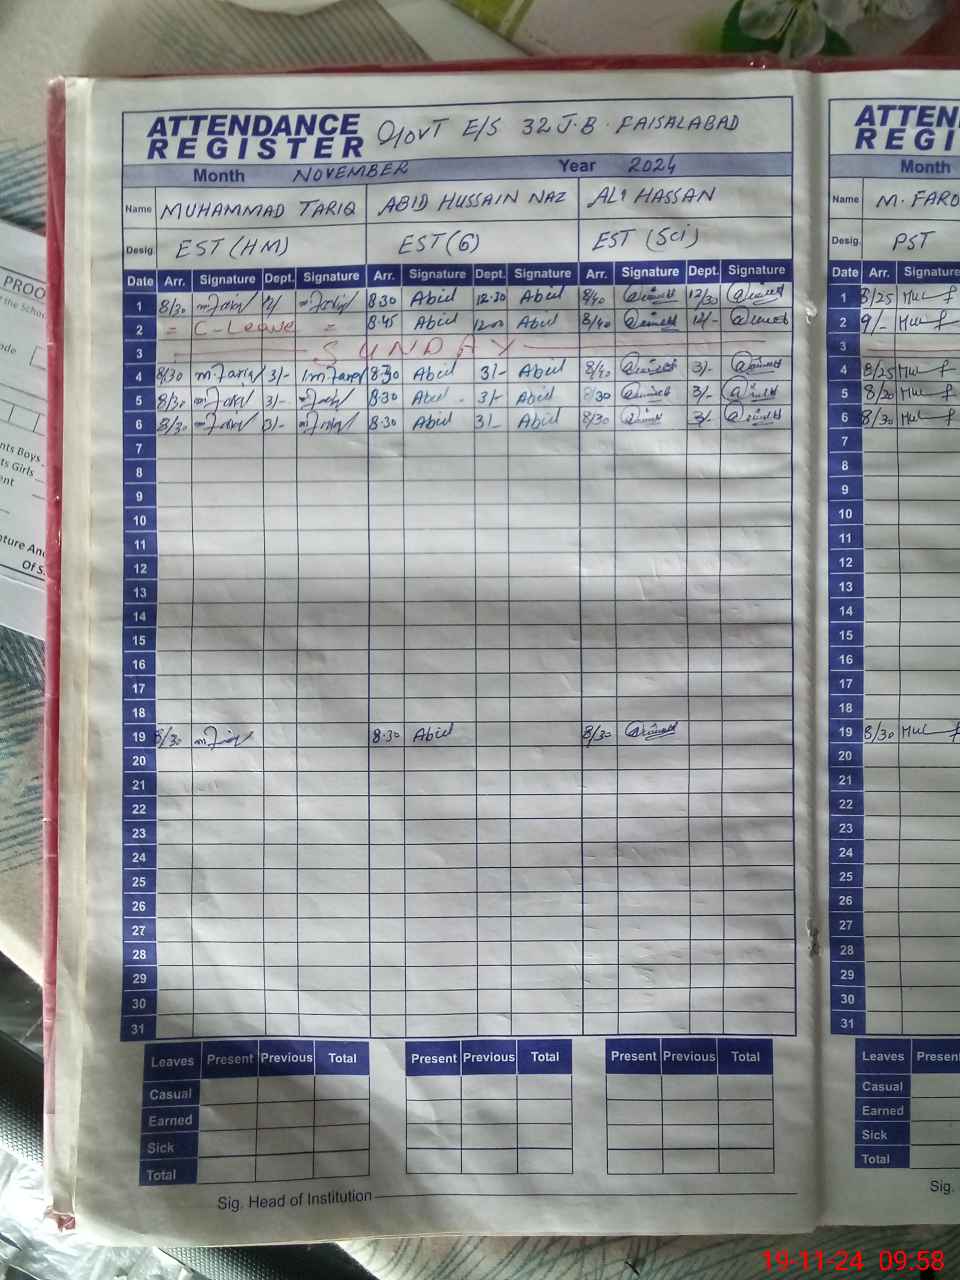 ATTENDANCE REGISTER Govt E/S 32 J.B. FAISALABAD
Month NOVEMBER Year 2024
Name MUHAMMAD TARIQ ABID HUSSAIN NAZ ALI HASSAN
Desig. EST (HM) EST (G) EST (Sci)
Date Arr. Signature Dept. Signature Arr. Signature Dept. Signature Arr. Signature Dept. Signature
1 8/30 8.30 Abid 12.30 Abid 8/40 12/30
2 = C-Leave = 8.45 Abid 1200 Abid 8/40 12/-
3 SUNDAY
4 8/30 m.Tariq 3/- m.Tariq 8.30 Abid 3/- Abid 8/40 3/-
5 8/30 3/- 8.30 Abid 3/- Abid 8/30 3/-
6 8/30 3/- 8.30 Abid 3/- Abid 8/30 3/-
7
8
9
10
11
12
13
14
15
16
17
18
19 8/30 8.30 Abid 8/30
20
21
22
23
24
25
26
27
28
29
30
31
Leaves Present Previous Total Present Previous Total Present Previous Total
Casual
Earned
Sick
Total
Sig. Head of Institution
ATTEN
REGI
Month
Name M. FARO
Desig. PST
Date Arr. Signature
1 8/25
2 9/-
3
4 8/25
5 8/20
6 8/30
7
8
9
10
11
12
13
14
15
16
17
18
19 8/30
20
21
22
23
24
25
26
27
28
29
30
31
Leaves Present
Casual
Earned
Sick
Total
Sig.
PROO
the Schoo
ode
nts Boys
ts Girls
ent
ture And
Of S
19-11-24 09:58